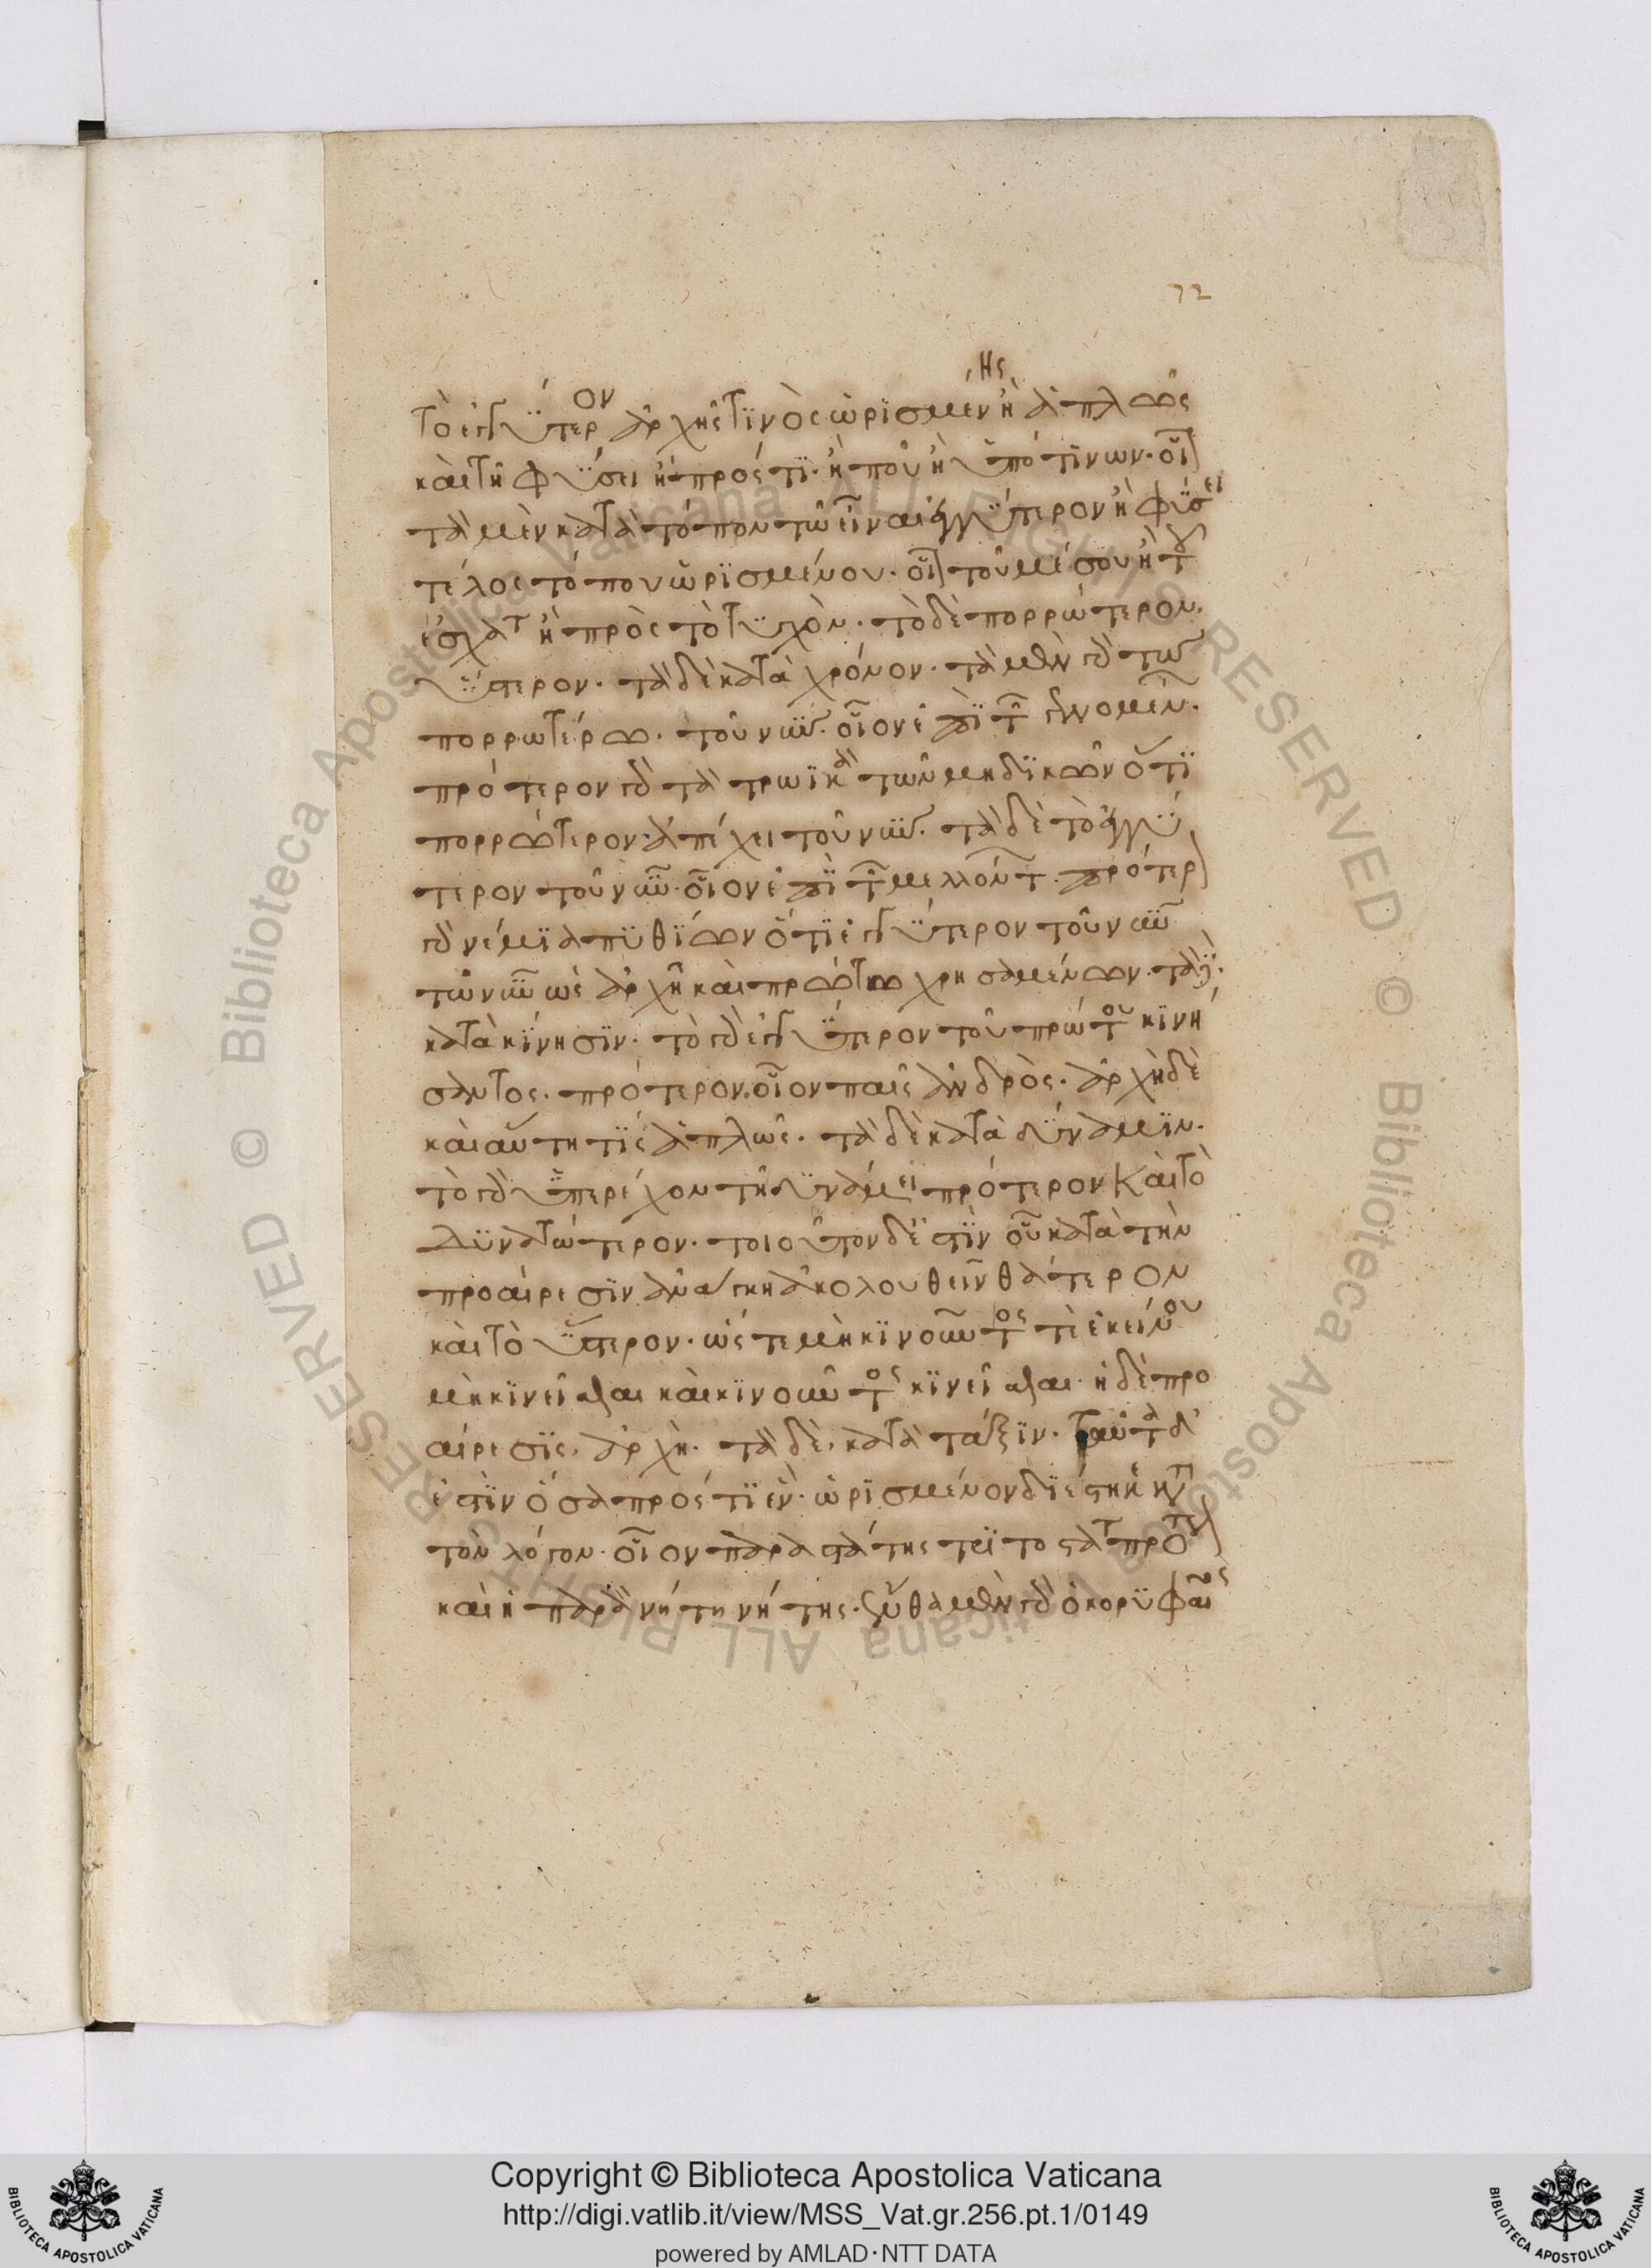 72
τὸ ἐγγύτερον ἀρχῆς τινὸς ὡρισμένης ἢ ἁπλῶς
καὶ τῆ φύσει ἢ πρός τι· ἢ ποῦ ἢ ὑπό τινων· οἷ
τὰ μὲν κατὰ τόπον τῶ εἶναι ἐγγύτερον ἢ φύσει
τέλος τόπου ὡρισμένου· οἷ τοῦ μέσου ἢ τοῦ
ἐσχάτ ἢ πρὸς τὸ τυχὸν· τὸ δὲ πορρώτερον
ὕστερον· τὰ δὲ κατὰ χρόνον· τὰ μὲν γὰρ τῶ
πορρωτέρω· τοῦ νῦν· οἷον ἐπὶ τῶν γενομένων·
πρότερον γὰρ τὰ τρωϊκὰ τῶν μηδικῶν ὅτι
πορρώτερον ἀπέχει τοῦ νῦν· τὰ δὲ τὸ ἐγγύ
τερον τοῦ νῦν· οἷον ἐπὶ τῶν μελλόντ πρότερ
γὰρ νέμια πυθίων ὅτι ἐγγύτερον τοῦ νῦν
τῶ νῦν ὡς ἀρχῆ καὶ πρώτω χρησαμένων· τὰ δὲ
κατὰ κίνησιν· τὸ γὰρ ἐγγύτερον τοῦ πρώτου κινή
σαντος· πρότερον· οἷον παῖς ἀνδρὸς· ἀρχὴ δὲ
καὶ αὕτη τὶς ἁπλῶς· τὰ δὲ κατὰ δύναμιν·
τὸ γὰρ ὑπερέχον τῆ δυνάμει πρότερον καὶ τὸ
δυνατώτερον· τοιοῦτον δέ ἐστιν οὗ κατὰ τὴν
προαίρεσιν ἀνάγκη ἀκολουθεῖν θάτερον
καὶ τὸ ὕστερον· ὥστε μὴ κινοῦντός τὲ ἐκείνου
μὴ κινεῖσθαι καὶ κινοῦντος κινεῖσθαι· ἡ δὲ προ
αίρεσις, ἀρχὴ· τὰ δὲ, κατὰ τάξιν· ταῦτα δ'
ἐστὶν ὅσα πρός τι ἓν· ὡρισμένον διέστηκε κατὰ
τὸν λόγον· οἷον παραστάτης τριτοστάτ πρότερ
καὶ ἡ παρανήτη νήτης· ἔνθα μὲν γὰρ ὁ κορυφαῖος
Copyright © Biblioteca Apostolica Vaticana
http://digi.vatlib.it/view/MSS_Vat.gr.256.pt.1/0149
powered by AMLAD·NTT DATA